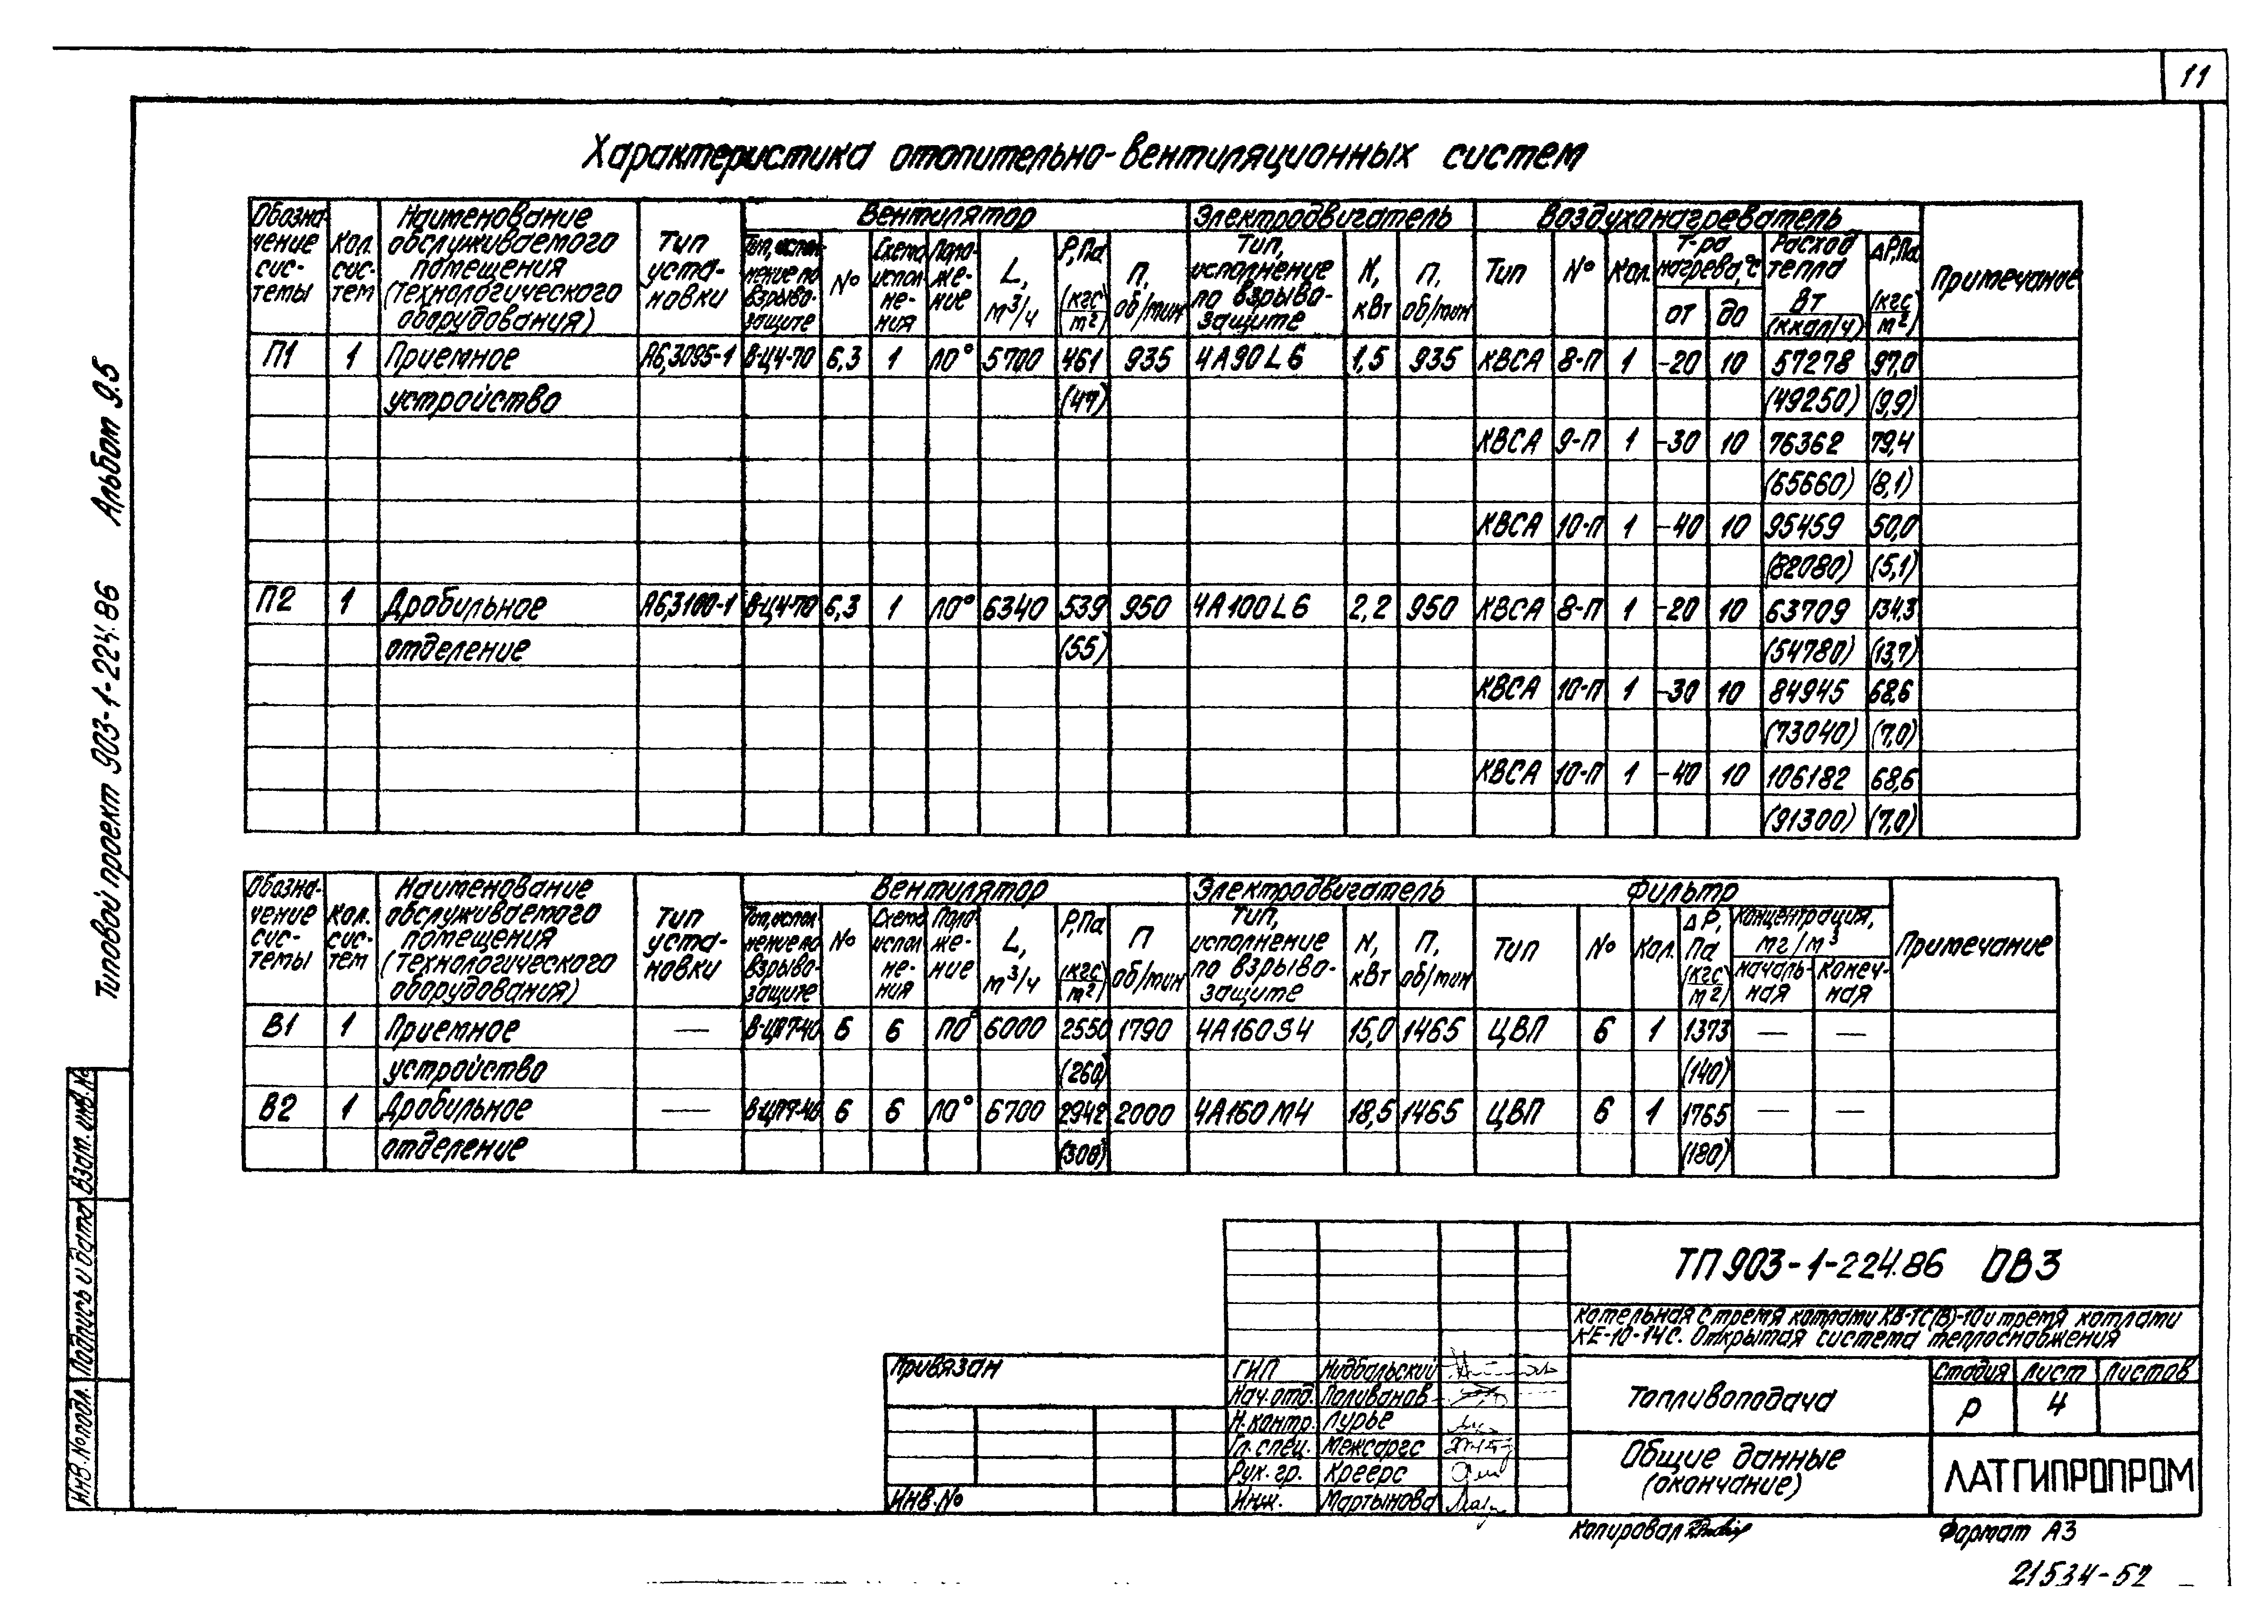 11
Характеристика отопительно-вентиляционных систем
Обозначение сис-темы | Кол. сис-тем | Наименование обслуживаемого помещения (технологического оборудования) | Тип уста-новки | Вентилятор | Электродвигатель | Воздухонагреватель | Примечание
Тип, испол-нение по взрыво-защите | № | Схема испол-не-ния | Поло-же-ние | L, м³/ч | Р, Па (кгс/м²) | П, об/мин | Тип, исполнение по взрыво-защите | N, кВт | П, об/мин | Тип | № | Кол. | Т-ра нагрева, °С от до | Расход тепла Вт (ккал/ч) | ΔР, Па (кгс/м²)
П1 1 Приемное А6,3095-1 В-Ц4-70 6,3 1 Л0° 5700 461 935 4А90L6 1,5 935 КВСА 8-П 1 -20 10 57278 97,0
устройство (47) (49250) (9,9)
КВСА 9-П 1 -30 10 76362 79,4
(65660) (8,1)
КВСА 10-П 1 -40 10 95459 50,0
(82080) (5,1)
П2 1 Дробильное А6,3100-1 В-Ц4-70 6,3 1 Л0° 6340 539 950 4А100L6 2,2 950 КВСА 8-П 1 -20 10 63709 134,3
отделение (55) (54780) (13,7)
КВСА 10-П 1 -30 10 84945 68,6
(73040) (7,0)
КВСА 10-П 1 -40 10 106182 68,6
(91300) (7,0)
Обозна-чение сис-темы | Кол. сис-тем | Наименование обслуживаемого помещения (технологического оборудования) | Тип уста-новки | Вентилятор | Электродвигатель | Фильтр | Примечание
Тип, испол-нение по взрыво-защите | № | Схема испол-не-ния | Поло-же-ние | L, м³/ч | Р, Па (кгс/м²) | П об/мин | Тип, исполнение по взрыво-защите | N, кВт | П, об/мин | Тип | № | Кол. | ΔР, Па (кгс/м²) | Концентрация, мг/м³ началь-ная конеч-ная
В1 1 Приемное — В-ЦП7-40 6 6 П0° 6000 2550 1790 4А160S4 15,0 1465 ЦВП 6 1 1373 — —
устройство (260) (140)
В2 1 Дробильное — В-ЦП7-40 6 6 Л0° 6700 2942 2000 4А160М4 18,5 1465 ЦВП 6 1 1765 — —
отделение (300) (180)
Типовой проект 903-1-224.86 Альбом 9.5
Инв.№подл. Подпись и дата Взам.инв.№
Привязан
Инв.№
ГИП Нидбальский
Нач.отд. Паливанов
Н.контр. Лурье
Гл.спец. Межсаргс
Рук.гр. Креерс
Инж. Мартынова
ТП 903-1-224.86 ОВ3
Котельная с тремя котлами КВ-ТС(В)-10 и тремя котлами
КЕ-10-14С. Открытая система теплоснабжения
Топливоподача
Стадия Лист Листов
Р 4
Общие данные
(окончание)
ЛАТГИПРОПРОМ
Копировал
Формат А3
21534-52